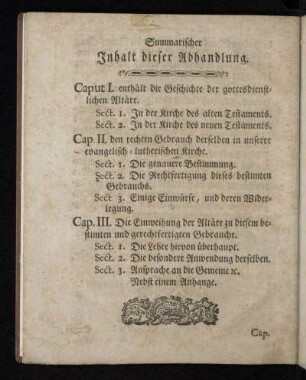 Summarischer
Inhalt dieser Abhandlung.
Caput I. enthält die Geschichte der gottesdienst-
lichen Altäre.
Sect. 1. In der Kirche des alten Testaments.
Sect. 2. In der Kirche des neuen Testaments.
Cap. II. den rechten Gebrauch derselben in unserer
evangelisch-lutherischen Kirche.
Sect. 1. Die genauere Bestimmung.
Sect. 2. Die Rechtfertigung dieses bestimten
Gebrauchs.
Sect. 3. Einige Einwürfe, und deren Wider-
legung.
Cap. III. Die Einweihung der Altäre zu diesem be-
stimten und gerechtfertigten Gebrauche.
Sect. 1. Die Lehre hievon überhaupt.
Sect. 2. Die besondere Anwendung derselben.
Sect. 3. Ansprache an die Gemeine ꝛc.
Nebst einem Anhange.
Cap.